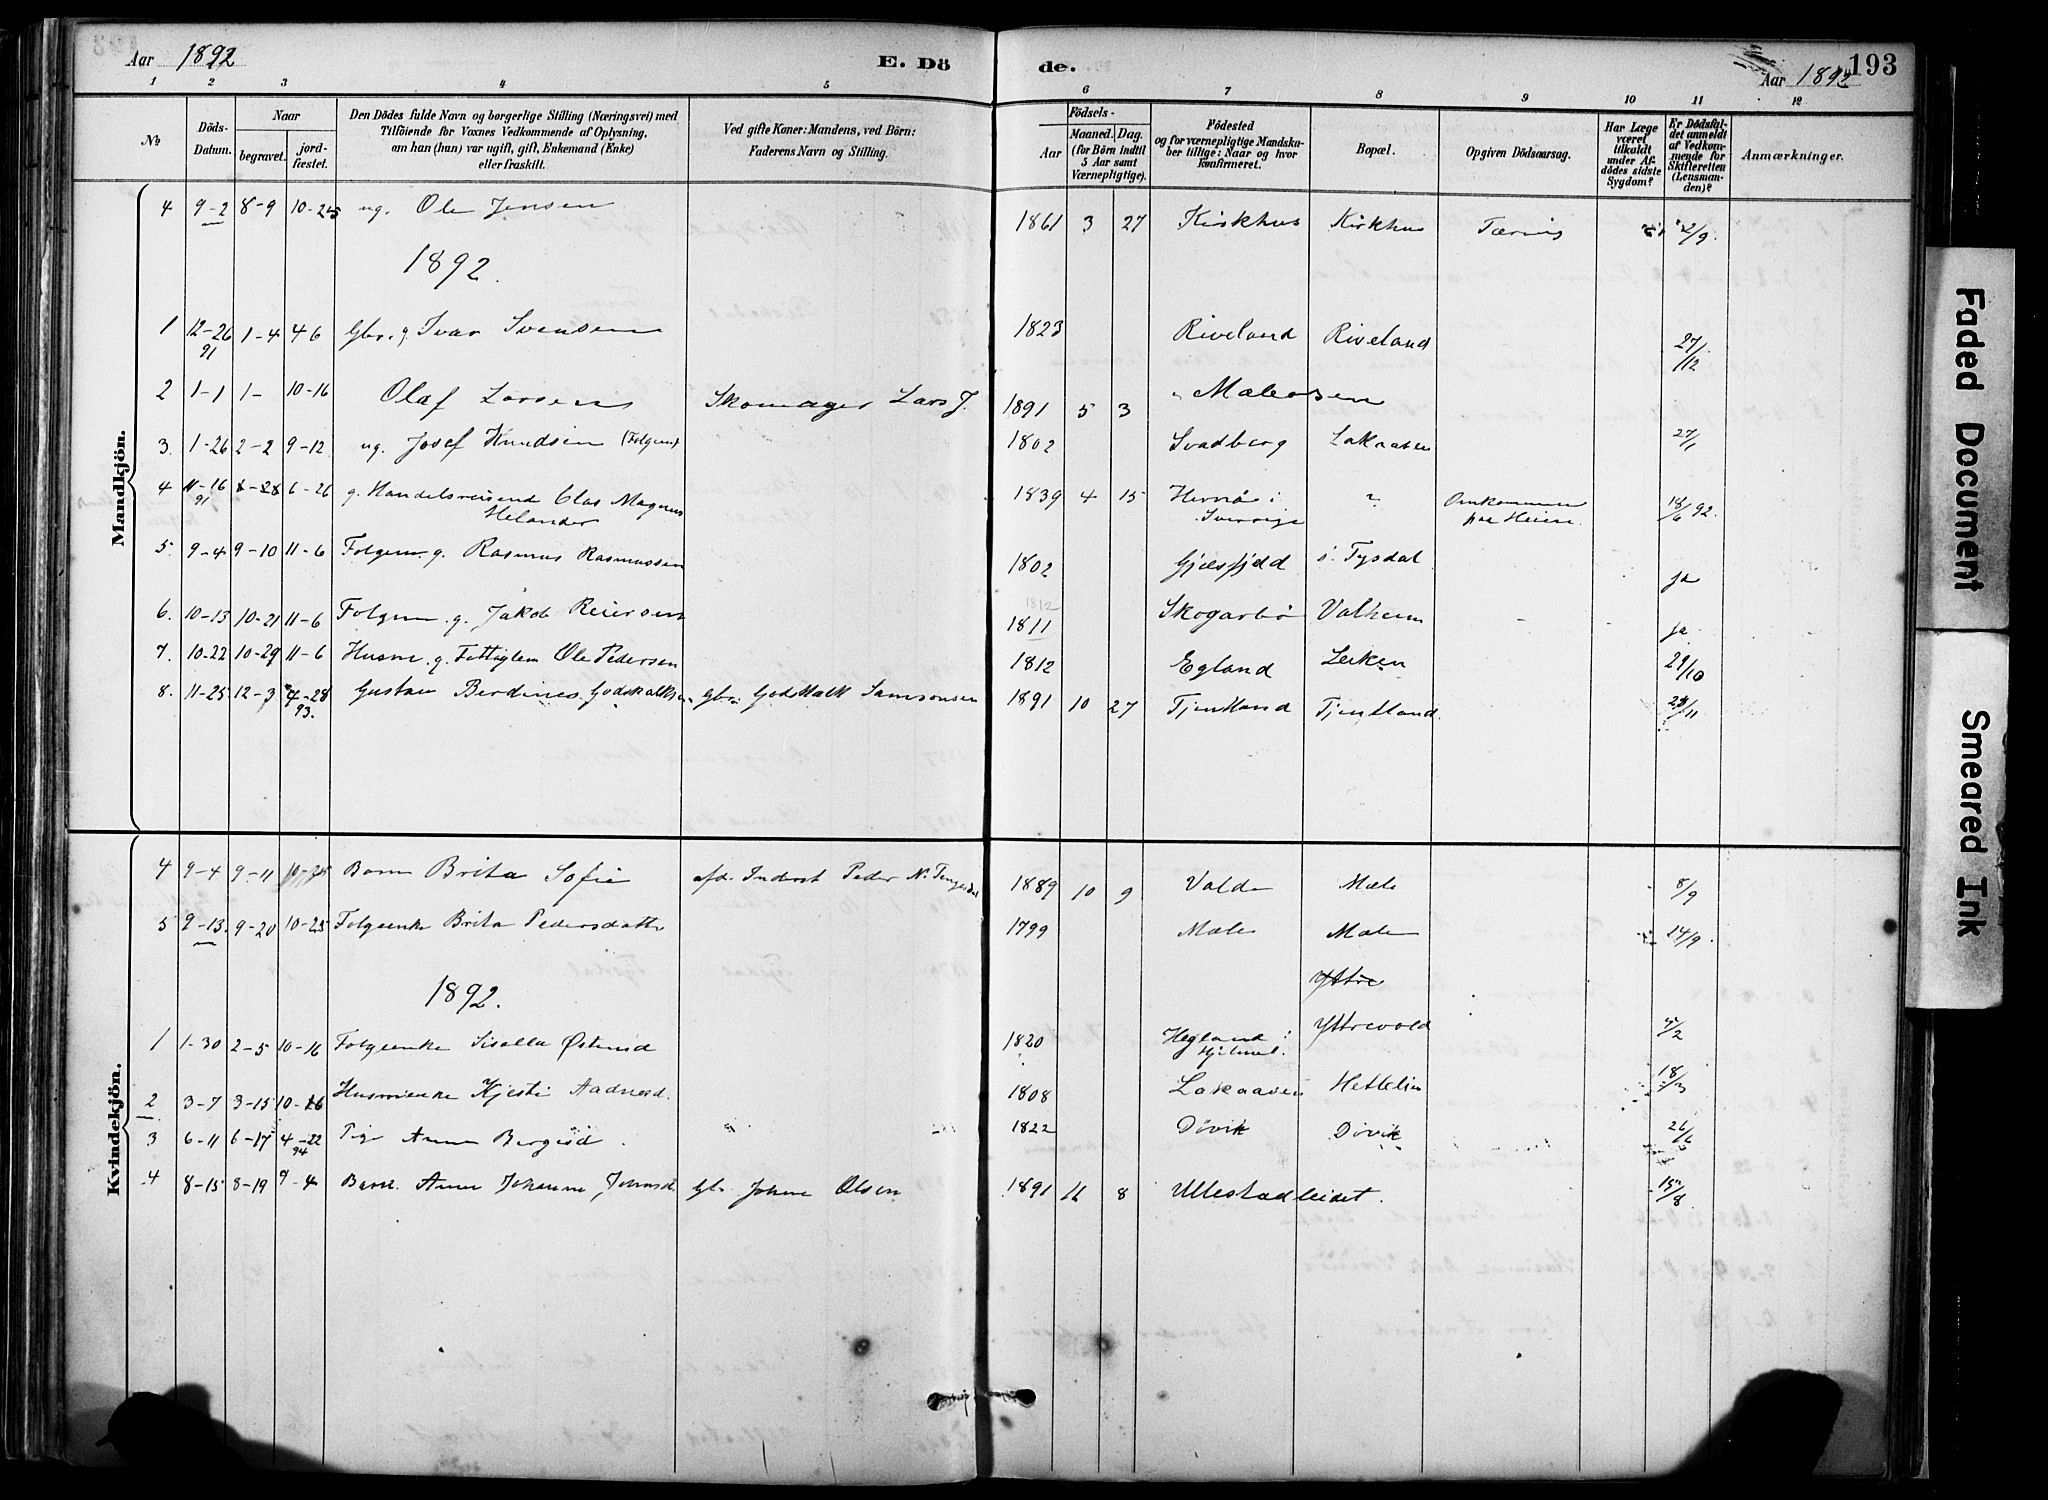 Aar 1892 E. Dö de. Aar 1892 193
1 2 3 4 5 6 7 8 9 10 11 12
No Döds-Datum. Naar begravet. jord-fæstet. Den Dödes fulde Navn og borgerlige Stilling (Næringsvei) med Tilföiende for Voxnes Vedkommende af Oplysning, om han (hun) var ugift, gift, Enkemand (Enke) eller fraskilt. Ved gifte Koner: Mandens, ved Börn: Faderens Navn og Stilling. Födsels- Aar Maaned. Dag. (for Börn indtil 5 Aar samt Værnepligtige). Födested og for værnepligtige Mandskaber tillige: Naar og hvor konfirmeret. Bopæl. Opgiven Dödsaarsag. Har Læge været tilkaldt under Afdödes sidste Sygdom? Er Dödsfaldet anmeldt af Vedkommende for Skifteretten (Lensmanden)? Anmærkninger.
Mandkjön.
4 9-2 8-9 10-25 ug. Ole Jensen 1861 3 27 Kirkhus Kirkhus Tæring 2/9.
1892.
1 12-26 91 1-4 4 6 Gbr. g. Ivar Svensen 1823 Riveland Riveland 27/12
2 1-1 1- 10-16 Olaf Larsen Skomager Lars J. 1891 5 3 Maleosen
3. 1-26 2-2 9-12 ug. Josef Knudsen (Folgem) 1802 Svadberg Lakaasen 27/1
4 11-16 91 8-28 6-26 g. Handelsreisend Clas Magnus Helander 1839 4 15 Hernø i Sverrige ? Omkommen paa Heien. 18/6 92.
5. 9-4 9-10 11-6 Folgem. g. Rasmus Rasmussen 1802 Gjilsfjeld i. Tysdal ja
6. 10-13 10-21 11-6 Folgem. g. Jakob Reiersen 1812 1811 Skogarbø Valheim ja
7. 10-22 10-29 11-6 Husm. g. Fattiglem Ole Pedersen 1812 Egland Leken 29/10
8. 11-25 12-3 4-28 93. Gustav Berdines Godskalksen Gbr. Godskalk Samsonsen 1891 10 27 Tjentland Tjentland. 28/11
Kvindekjön.
4 9-4 9-11 10-25 Barn Brita Sofie afd. Inderst Peder N. 1889 10 9 Valde Mæle 8/9
5 9-13. 9-20 10-25 Folgeenke Brita Pedersdatter 1799 Mæle Mæle 14/9.
1892. Yttre
1 1-30 2-5 10-16 Folgeenke Sisella Østensd 1820 Hegland i Hjelmel. Yttrevold 4/2
2 3-7 3-15 10-16 Husmenke Kjesti Aadnesd. 1808 Lakaasen Hettelien 18/3
3 6-11 6-17 4-22 94 Pige Anna Bergsd. 1822 Døvik Døvik 26/6
4 8-15 8-19 9-4 Barn. Anna Johanna Johnsd. Gbr. Johne Olsen 1891 11 8 Ullestadleidet. 15/8
Faded Document
Smeared Ink